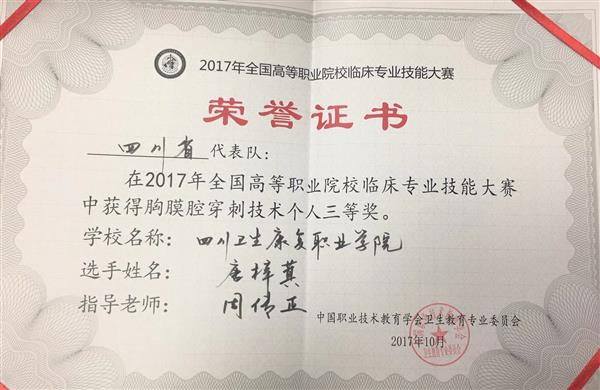 2017年全国高等职业院校临床专业技能大赛
荣誉证书
四川省 代表队:
在2017年全国高等职业院校临床专业技能大赛
中获得胸膜腔穿刺技术个人三等奖。
学校名称: 四川卫生康复职业学院
选手姓名: 唐梓萁
指导老师: 周倩正
中国职业技术教育学会卫生教育专业委员会
2017年10月